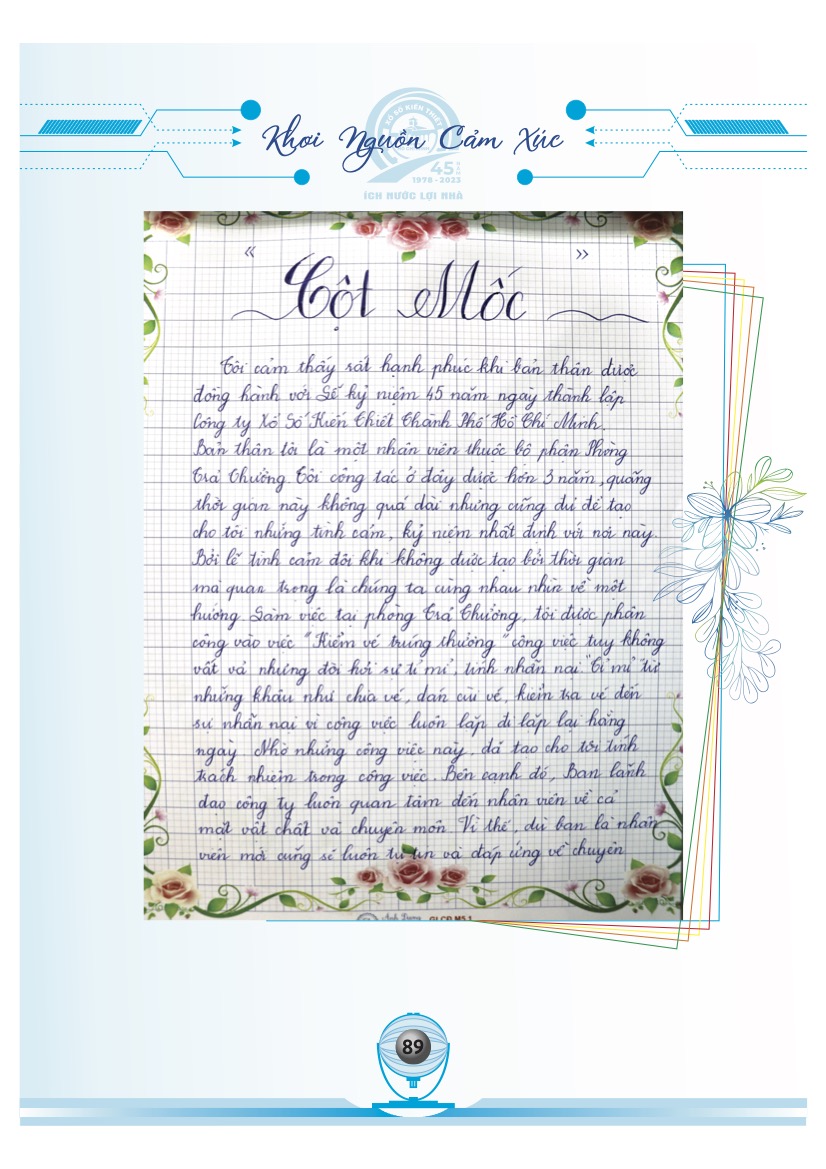 Khơi Nguồn Cảm Xúc
XỔ SỐ KIẾN THIẾT
45 NĂM
1978 - 2023
ÍCH NƯỚC LỢI NHÀ
“ Cột Mốc ”
Tôi cảm thấy rất hạnh phúc khi bản thân được
đồng hành với Lễ kỷ niệm 45 năm ngày thành lập
Công ty Xổ Số Kiến Thiết Thành Phố Hồ Chí Minh.
Bản thân tôi là một nhân viên thuộc bộ phận Phòng
Trả Thưởng. Tôi công tác ở đây được hơn 3 năm, quãng
thời gian này không quá dài nhưng cũng đủ để tạo
cho tôi những tình cảm, kỷ niệm nhất định với nơi này.
Bởi lẽ tình cảm đôi khi không được tạo bởi thời gian
mà quan trọng là chúng ta cùng nhau nhìn về một
hướng. Làm việc tại phòng Trả Thưởng, tôi được phân
công vào việc “Kiểm vé trúng thưởng” công việc tuy không
vất vả nhưng đòi hỏi sự tỉ mỉ, tính nhẫn nại. Tỉ mỉ từ
những khâu như chia vé, dán cùi vé, kiểm tra vé đến
sự nhẫn nại vì công việc luôn lặp đi lặp lại hằng
ngày. Nhờ những công việc này, đã tạo cho tôi tính
trách nhiệm trong công việc. Bên cạnh đó, Ban lãnh
đạo công ty luôn quan tâm đến nhân viên về cả
mặt vật chất và chuyên môn. Vì thế, dù bạn là nhân
viên mới cũng sẽ luôn tự tin và đáp ứng về chuyên
GLCĐ M5.1
89